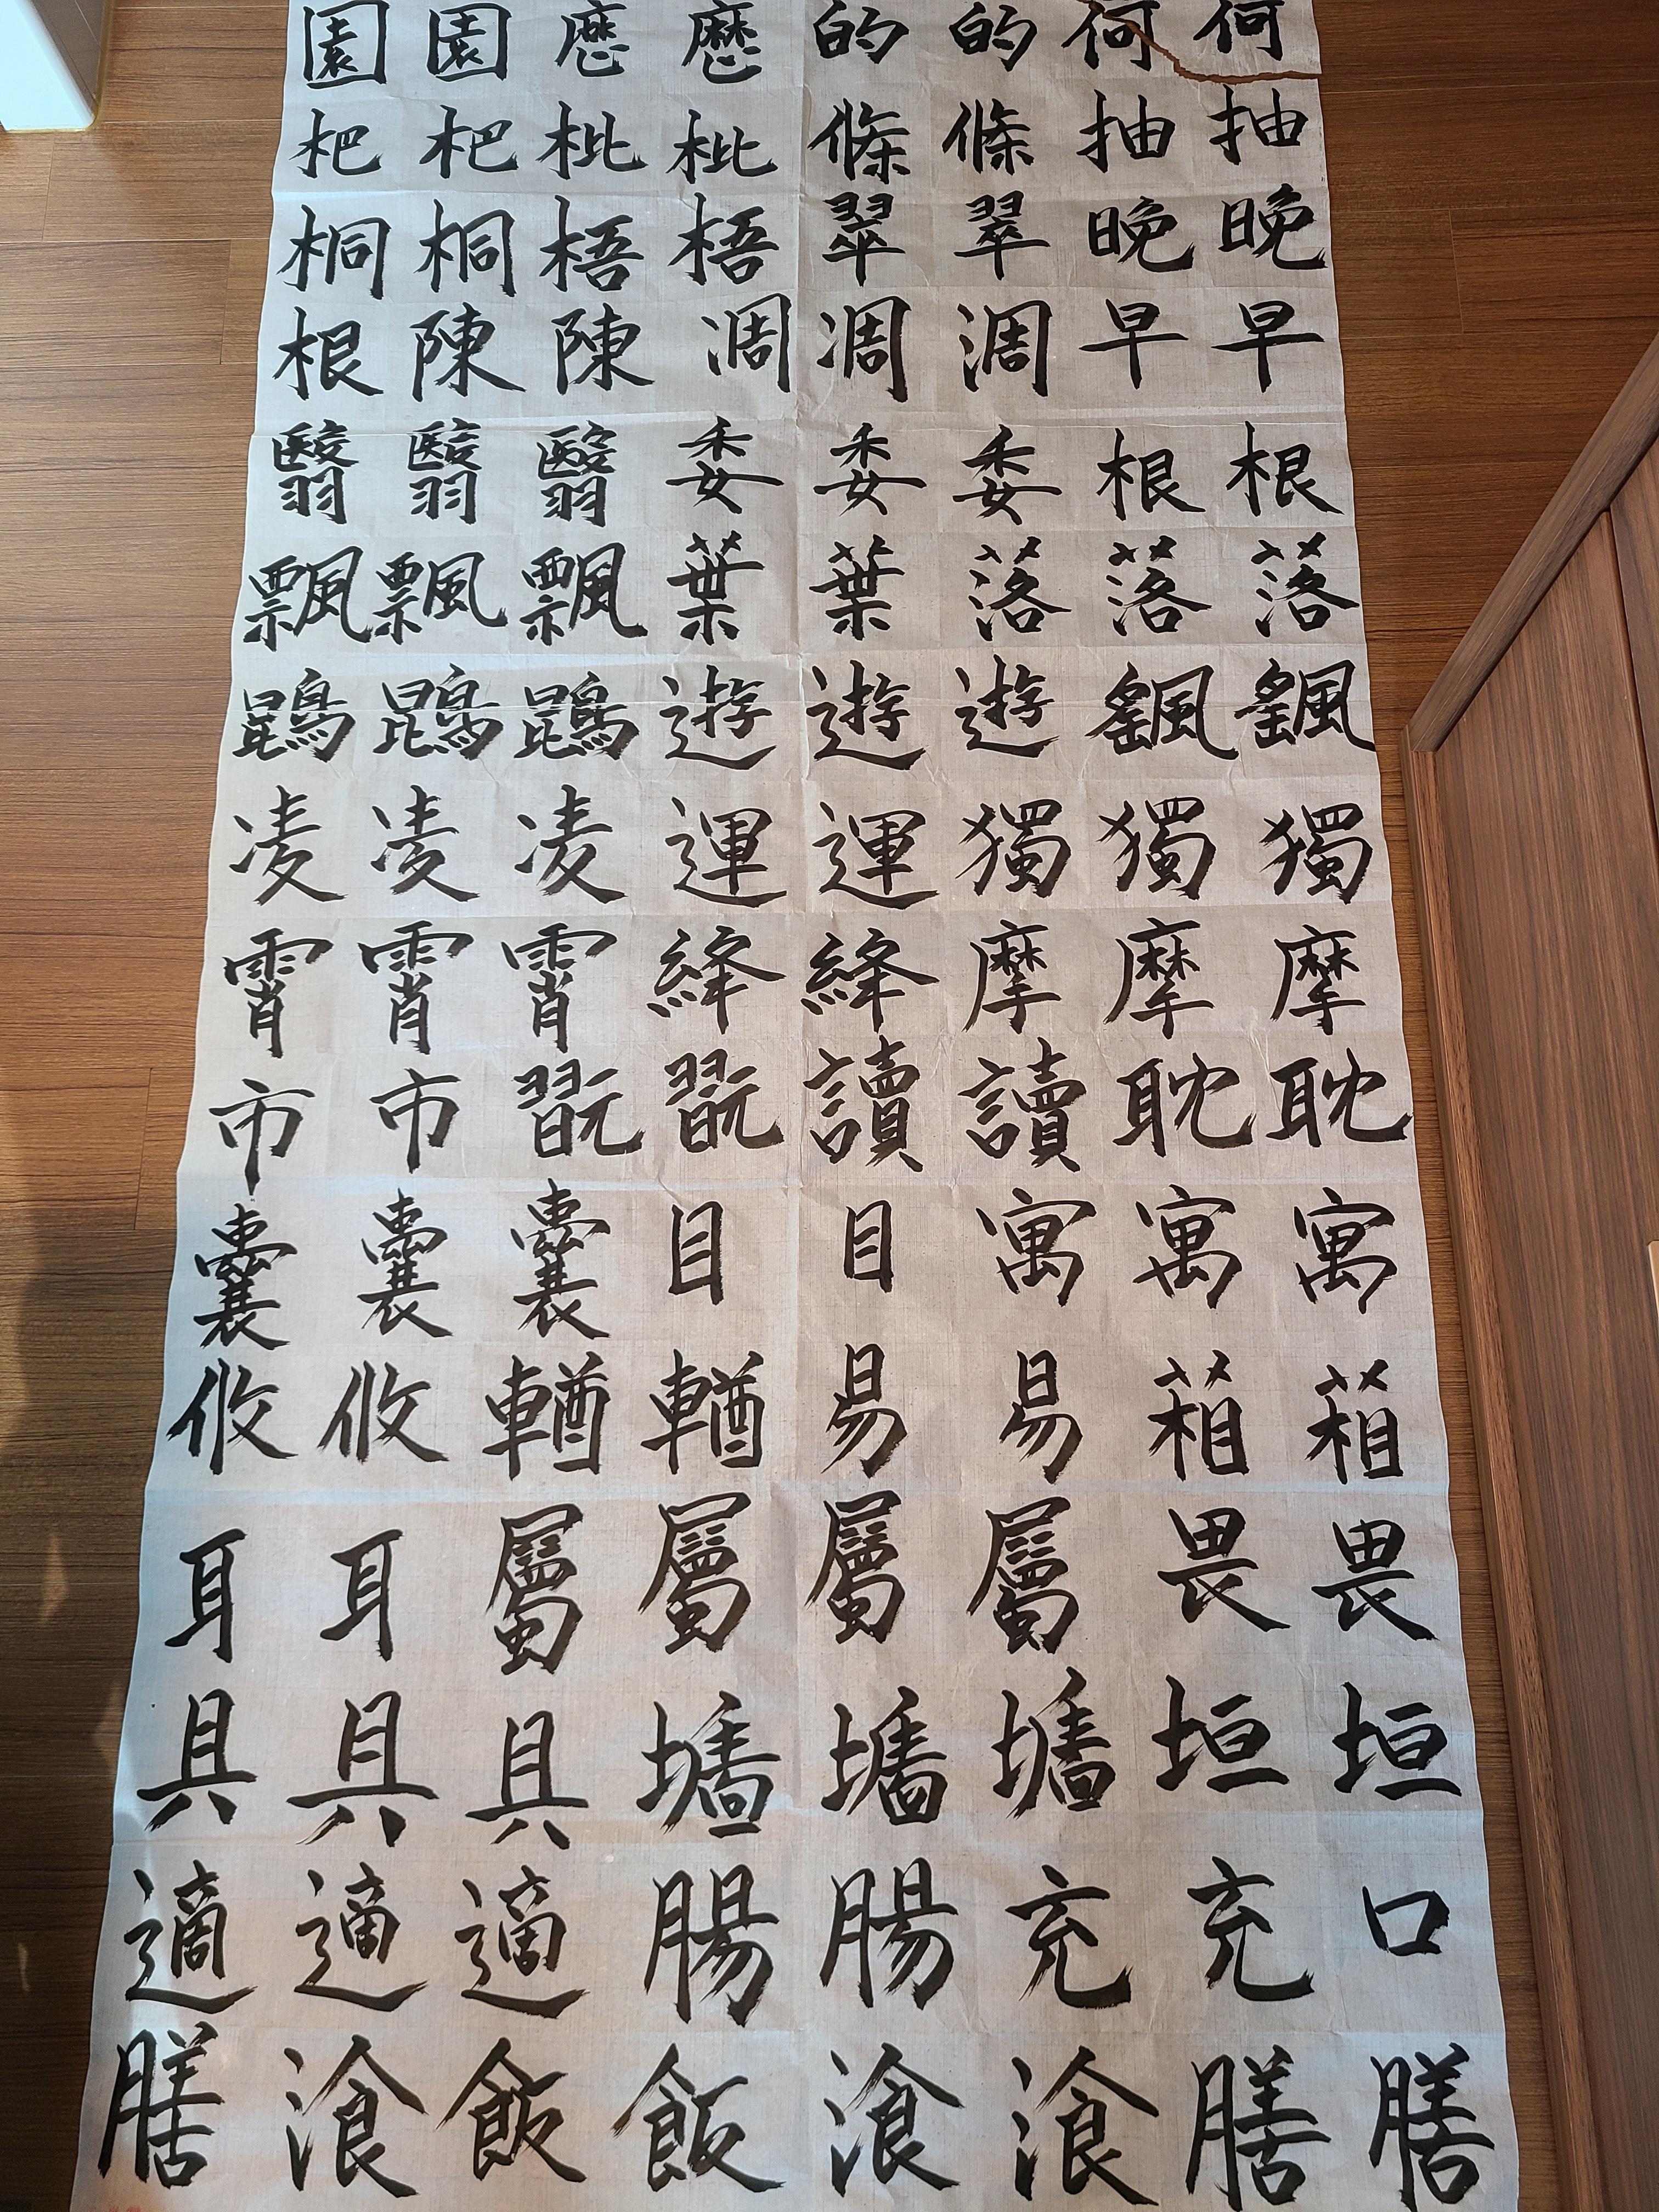 何何的的歷歷園園
抽抽條條枇枇杷杷
晚晚翠翠梧梧桐桐
早早凋凋凋陳陳根
根根委委委翳翳翳
落落落葉葉飄飄飄
颻颻遊遊遊鵾鵾鵾
獨獨獨運運凌凌凌
摩摩摩絳絳霄霄霄
耽耽讀讀翫翫市市
寓寓寓目目囊囊囊
箱箱易易輶輶攸攸
畏畏屬屬屬屬耳耳
垣垣墻墻墻具具具
口充充腸腸適適適
膳膳湌湌飯飯湌膳